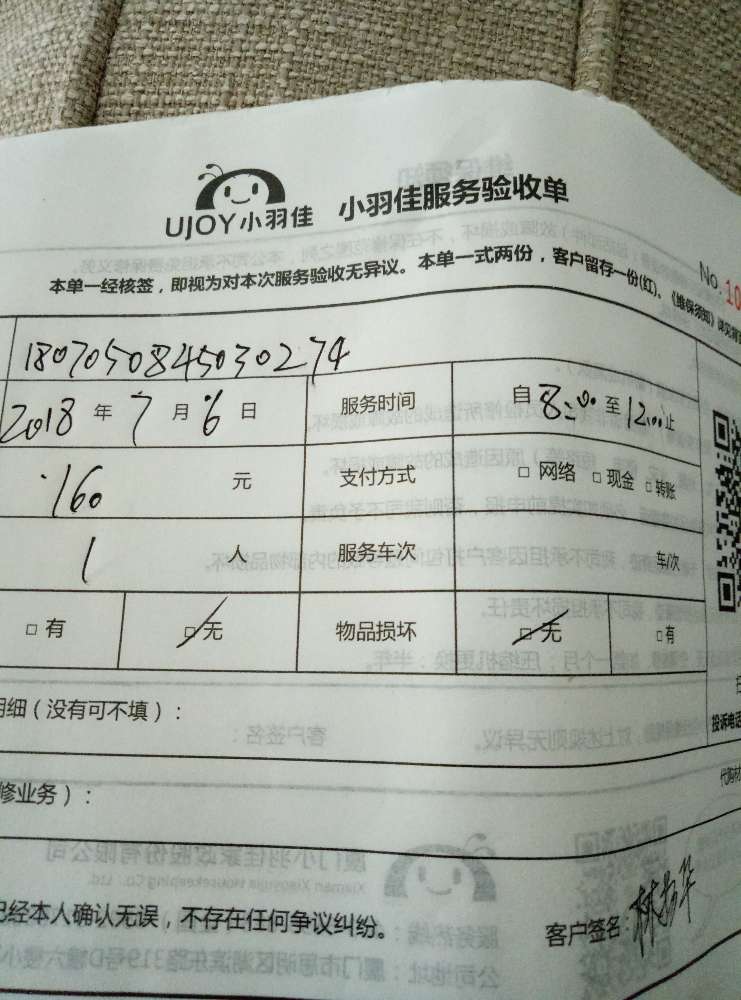 UJOY小羽佳 小羽佳服务验收单
No.10
本单一经核签，即视为对本次服务验收无异议。本单一式两份，客户留存一份(红)。《维保须知》详见背
1807050845030274
2018年7月6日 服务时间 自8:00至12:00止
160元 支付方式 □ 网络 □ 现金 □ 转账
1人 服务车次 车/次
□ 有 □ 无 物品损坏 □ 无 □ 有
明细（没有可不填）：
投诉电话
修业务）：
已经本人确认无误，不存在任何争议纠纷。
客户签名：